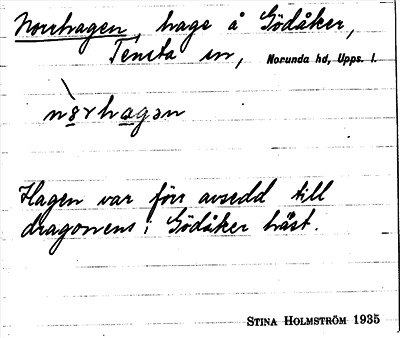 Norrhagen, hage å Gödåker,
Tensta sn, Norunda hd, Upps. l.
nòrhagən
Hagen var förr avsedd till
dragonens i Gödåker häst.
STINA HOLMSTRÖM 1935